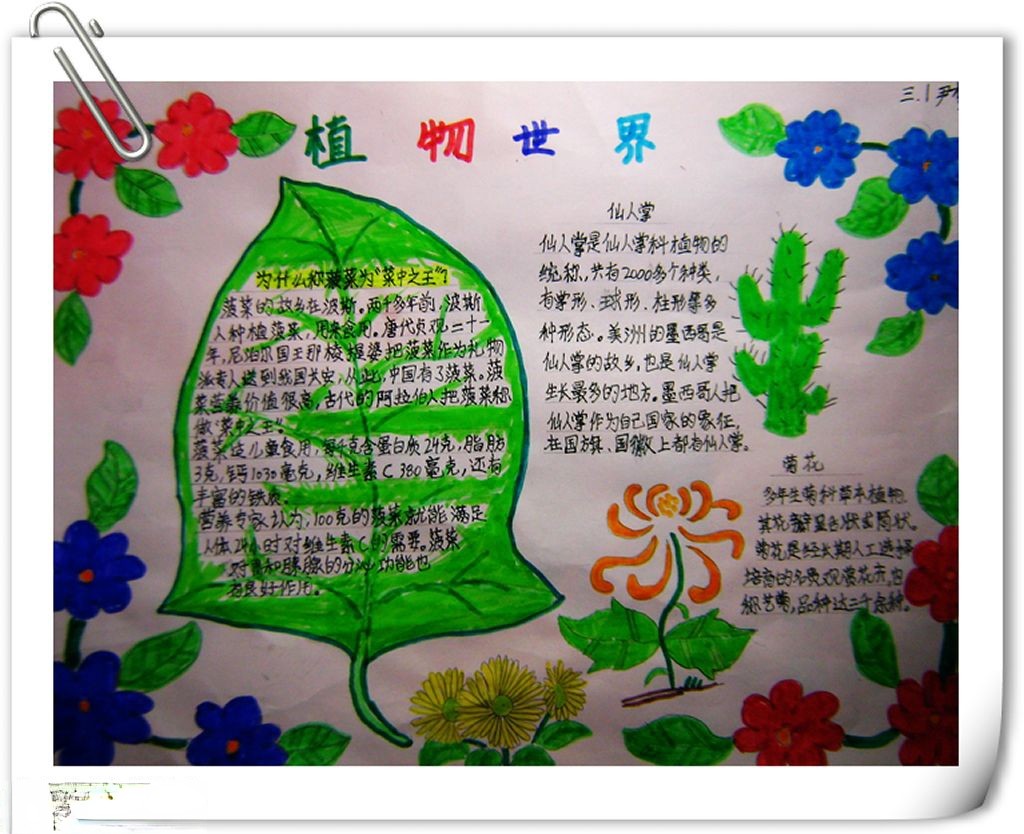 三.1 尹
植物世界
为什么称菠菜为“菜中之王”?
菠菜的故乡在波斯。两千多年前，波斯
人种植菠菜，用来食用。唐代贞观二十一
年，尼泊尔国王那棱提婆把菠菜作为礼物
派专人送到我国长安，从此，中国有了菠菜。菠
菜营养价值很高，古代的阿拉伯人把菠菜称
做“菜中之王”。
菠菜适儿童食用，每千克含蛋白质24克，脂肪
3克，钙1030毫克，维生素C380毫克，还有
丰富的铁质。
营养专家认为，100克的菠菜就能满足
人体24小时对维生素C的需要。菠菜
对胃和胰腺的分泌功能也
有良好作用。
仙人掌
仙人掌是仙人掌科植物的
统称，共有2000多个种类，
有掌形、球形、柱形等多
种形态。美洲的墨西哥是
仙人掌的故乡，也是仙人掌
生长最多的地方。墨西哥人把
仙人掌作为自己国家的象征，
在国旗、国徽上都有仙人掌。
菊花
多年生菊科草本植物，
其花瓣呈舌状或筒状。
菊花是经长期人工选择
培育的名贵观赏花卉，也
称艺菊，品种达三千余种。